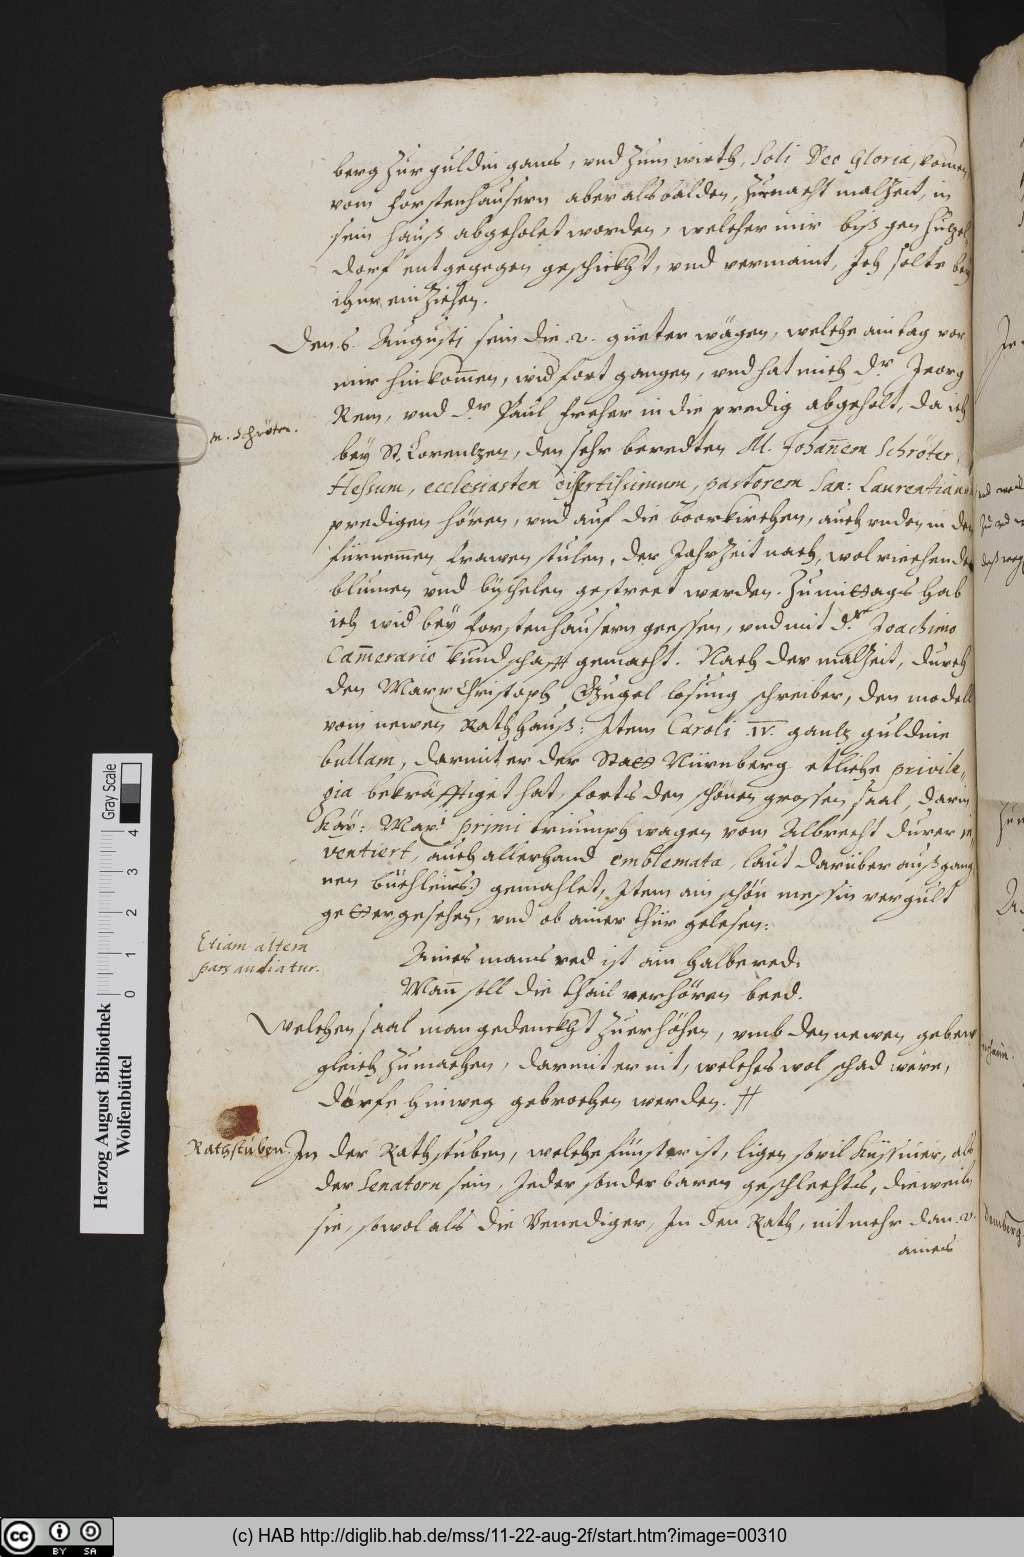 berg zur guldin gans, vnd zum wirth, Soli Deo Gloria, komen
vom Forstenhausern aber alsbalden, zur nacht malzeit, in
sein hauß abgeholet worden, welcher mir biß gen
dorf entgegegen geschickht, vnd vermaint, Ich solte bey
ihme ein ziehen.
Den 6. Augusti sein die 2. gueter wägen, welche ain tag vor
mir hinkom̄en, wid fort gangen, vnd hat mich Dr. Jeorg
Rem, vnd Dr. Paul Freher in die predig abgeholt, da ich
M. Schröter.
bey St. Lorentzen, den sehr beredten M. Johan̄em Schröter,
Hessum, ecclesiasten disertissimum, pastorem San: Laurentianum
predigen hören, vnd auf die boorkirchen, auch vnden in den
fürnem̄en frawen stulen, der Jahrzeit nach, wol riechende
blumen vnd büschelen gestreet werden. Zu mittags hab
ich wid bey Forstenhausern geessen, vnd mit Dr. Joachimo
Cam̄erario kundschafft gemacht. Nach der malzeit, durch
den Marx Christoph Gugel losung schreiber, den modell
vom newen Rathhauß: Item Caroli IV. gantz guldine
bullam, darmit er der Statt Nürnberg etliche privile-
gia bekräfftiget hat, forts den schönen grossen saal, darin
Kay: Maxi primi triumph wagen vom Albrecht Durer in-
ventiert, auch allerhand emblemata, laut darüber außgang
nen büchleins) gemahlet, Item ain schön messin vergult
getter gesehen, vnd ob ainer thür gelesen:
Etiam altera
pars audiatur.
Aines mans red ist ain halbe red:
Man̄ soll die thail verhören beed.
Welchen saal man gedenckht zuerhöhen, vmb den newen gebew
gleich zumachen, darmit er nit, welches wol schad were,
dörfe hinweg gebrochen werden. #
Rathstuben.
In der Rathstuben, welche finster ist, ligen sovil Küssiner, als
der Senatorn sein, Jeder sonderbaren geschlechts, dieweiln
sie, sowol als die Venediger, In den Rath, nit mehr dan 2.
aines
Herzog August Bibliothek
Wolfenbüttel
Gray Scale
0 1 2 3 4
(c) HAB http://diglib.hab.de/mss/11-22-aug-2f/start.htm?image=00310
cc BY SA